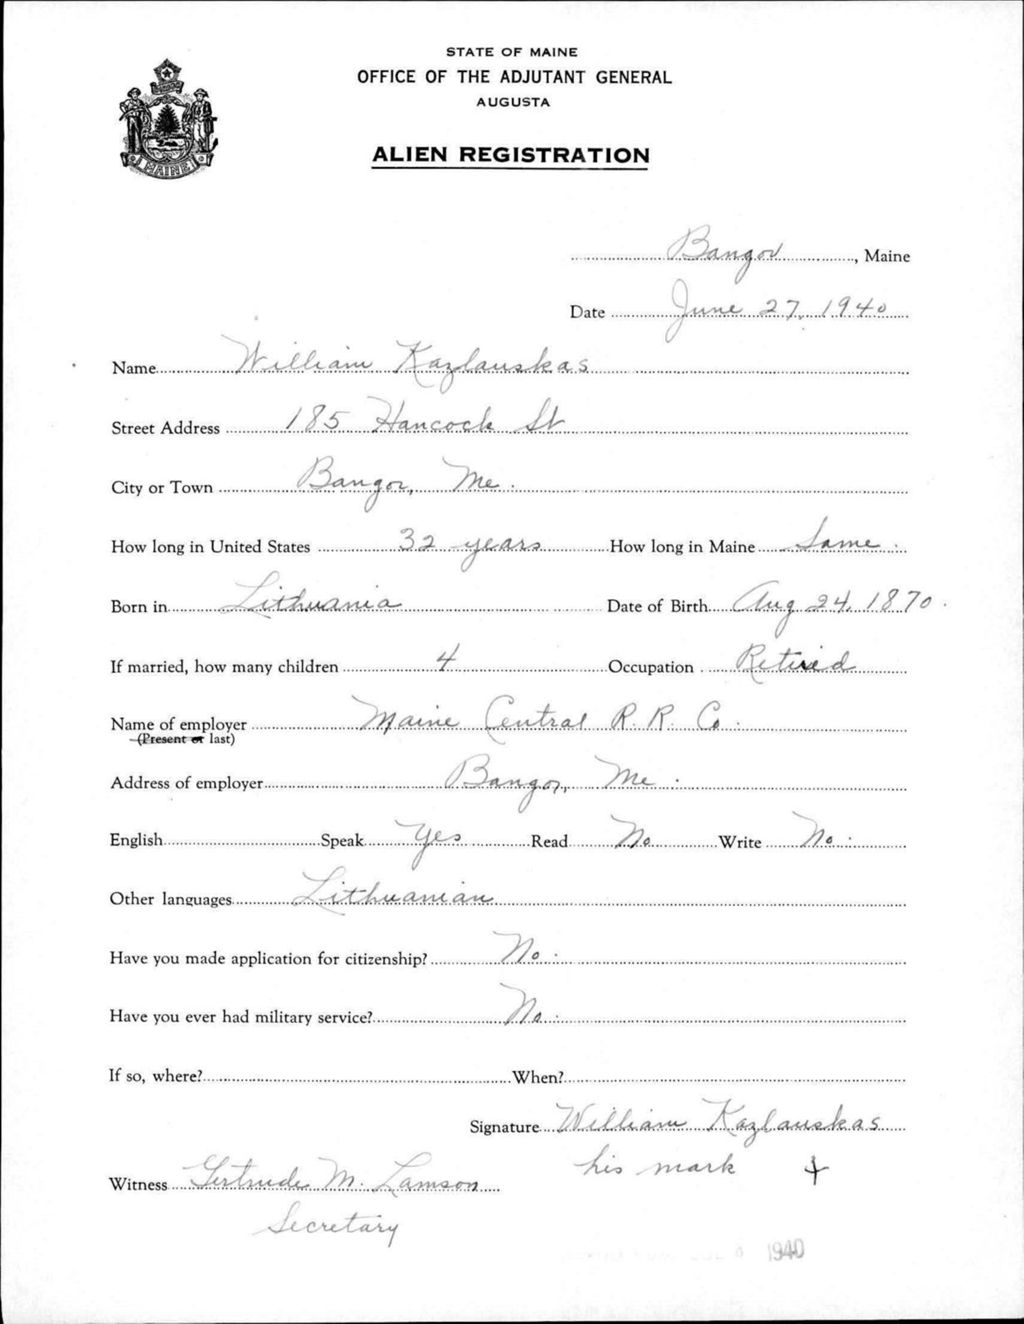 STATE OF MAINE
OFFICE OF THE ADJUTANT GENERAL
AUGUSTA
ALIEN REGISTRATION
MAINE
Bangor, Maine
Date June 27, 1940
Name William Kazlauskas
Street Address 185 Hancock St
City or Town Bangor, Me.
How long in United States 32 years How long in Maine Same.
Born in Lithuania Date of Birth Aug 24, 1870.
If married, how many children 4 Occupation Retired
Name of employer Maine Central R. R. Co.
(Present or last)
Address of employer Bangor, Me.
English Speak Yes Read No Write No.
Other languages Lithuanian
Have you made application for citizenship? No.
Have you ever had military service? No.
If so, where? When?
Signature William Kazlauskas
his mark +
Witness Gertrude M. Lamson
Secretary
1940